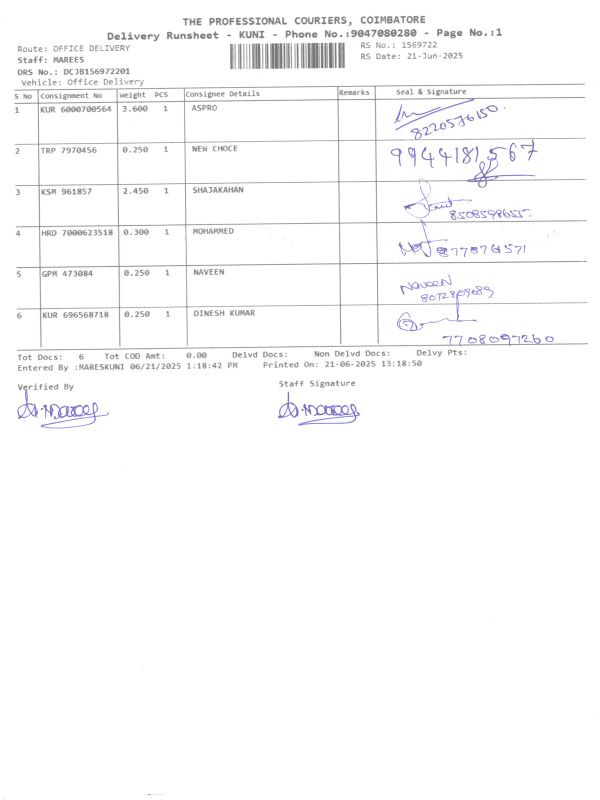 THE PROFESSIONAL COURIERS, COIMBATORE
Delivery Runsheet - KUNI - Phone No.:9047080280 - Page No.:1
Route: OFFICE DELIVERY
RS No.: 1569722
Staff: MAREES
RS Date: 21-Jun-2025
DRS No.: DCJB156972201
Vehicle: Office Delivery
S No Consignment No Weight PCS Consignee Details Remarks Seal & Signature
1 KUR 6000700564 3.600 1 ASPRO
8220576150.
2 TRP 7970456 0.250 1 NEW CHOCE 9944181567
3 KSM 961857 2.450 1 SHAJAKAHAN
4 HRD 7000623518 0.300 1 MOHAMMED
5 GPM 473084 0.250 1 NAVEEN NAVEEN
6 KUR 696568718 0.250 1 DINESH KUMAR
7708097260
Tot Docs: 6 Tot COD Amt: 0.00 Delvd Docs: Non Delvd Docs: Delvy Pts:
Entered By :MARESKUNI 06/21/2025 1:18:42 PM Printed On: 21-06-2025 13:18:50
Verified By Staff Signature